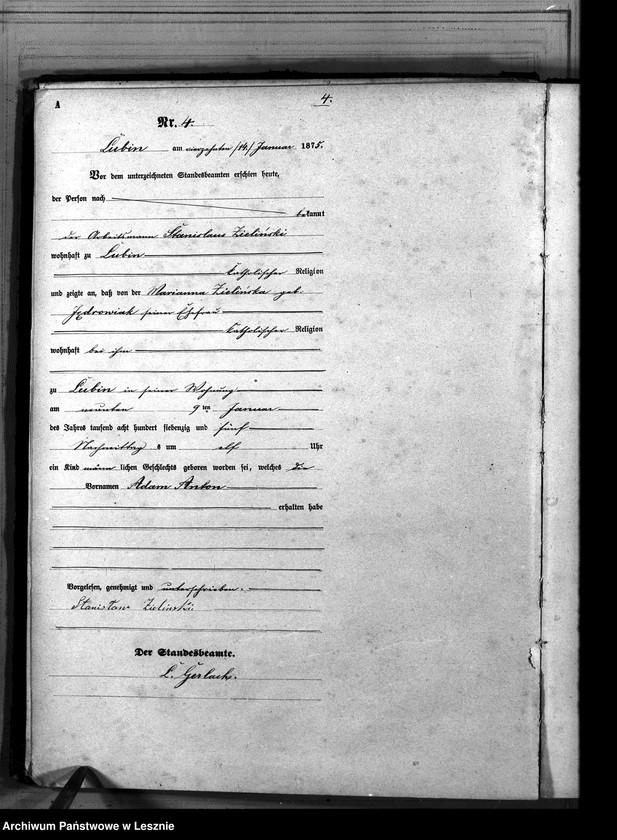 4.
A
Nr. 4.
Lubin am vierzehnten /14./ Januar 1875.
Vor dem unterzeichneten Standesbeamten erschien heute,
der Person nach
bekannt
der Arbeitsmann Stanislaus Zieliński
wohnhaft zu Lubin
katholischer Religion
und zeigte an, daß von der Marianna Zielińska geb.
Jędrowiak seiner Ehefrau
katholischer Religion
wohnhaft bei ihm
zu Lubin in seiner Wohnung
am neunten 9ten Januar
des Jahres tausend acht hundert siebenzig und fünf
Nachmittag s um elf Uhr
ein Kind männ lichen Geschlechts geboren worden sei, welches die
Vornamen Adam Anton
erhalten habe
Vorgelesen, genehmigt und unterschrieben.
Stanisław Zielinski
Der Standesbeamte.
Gerlach.
Archiwum Państwowe w Lesznie